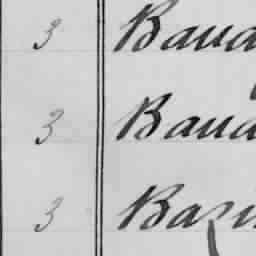 3 Baud
3 Baud
3 Bazi